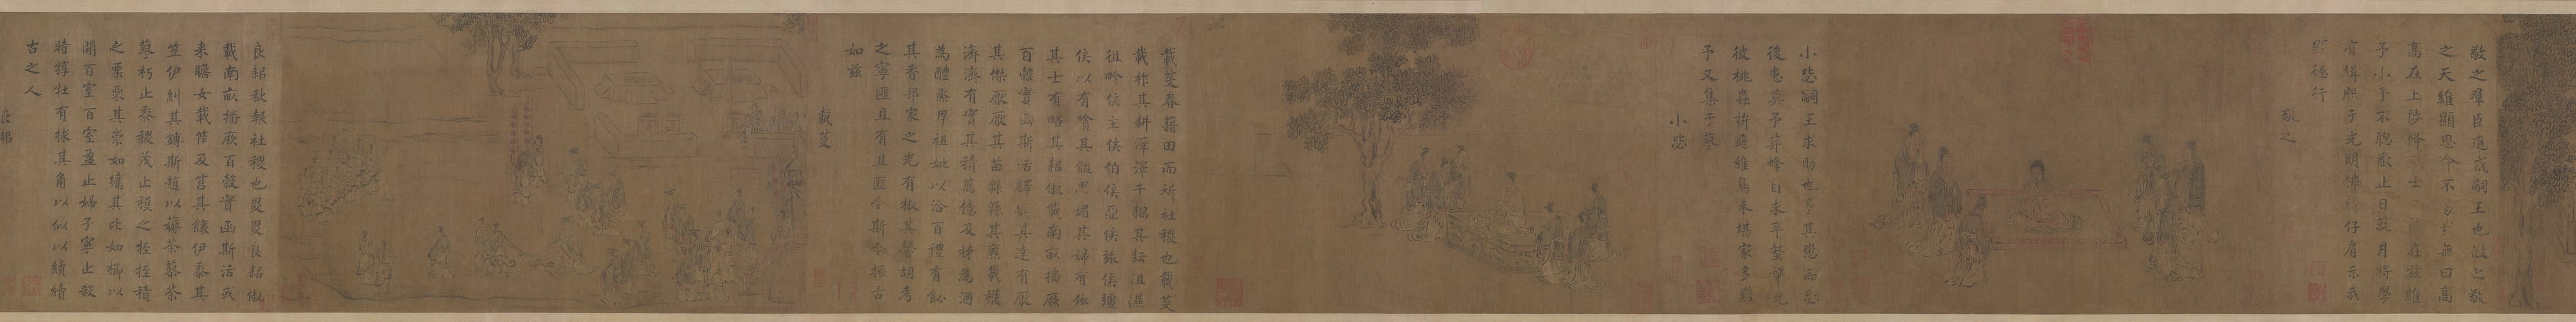 敬之羣臣進戒嗣王也敬之敬
之天維顯思命不易哉無曰高
高在上陟降厥士日監在茲維
予小子不聰敬止日就月將學
有緝熙于光明佛時仔肩示我
顯德行
敬之
小毖嗣王求助也予其懲而毖
後患莫予荓蜂自求辛螫肇允
彼桃蟲拚飛維鳥未堪家多難
予又集于蓼
小毖
載芟春籍田而祈社稷也載芟
載柞其耕澤澤千耦其耘徂隰
徂畛侯主侯伯侯亞侯旅侯彊
侯以有嗿其饁思媚其婦有依
其士有略其耜俶載南畝播厥
百穀實函斯活驛驛其達有厭
其傑厭厭其苗緜緜其麃載穫
濟濟有實其積萬億及秭為酒
為醴烝畀祖妣以洽百禮有飶
其香邦家之光有椒其馨胡考
之寧匪且有且匪今斯今振古
如茲
載芟
良耜秋報社稷也畟畟良耜俶
載南畝播厥百穀實函斯活或
來瞻女載筐及筥其饟伊黍其
笠伊糾其鎛斯趙以薅荼蓼荼
蓼朽止黍稷茂止穫之挃挃積
之栗栗其崇如墉其比如櫛以
開百室百室盈止婦子寧止殺
時犉牡有捄其角以似以續續
古之人
良耜